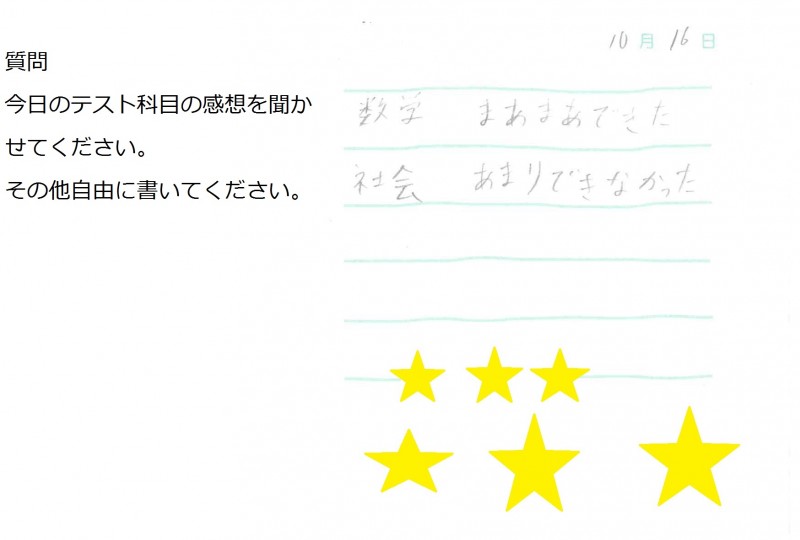 質問
今日のテスト科目の感想を聞か
せてください。
その他自由に書いてください。
10月16日
数学 まあまあできた
社会 あまりできなかった